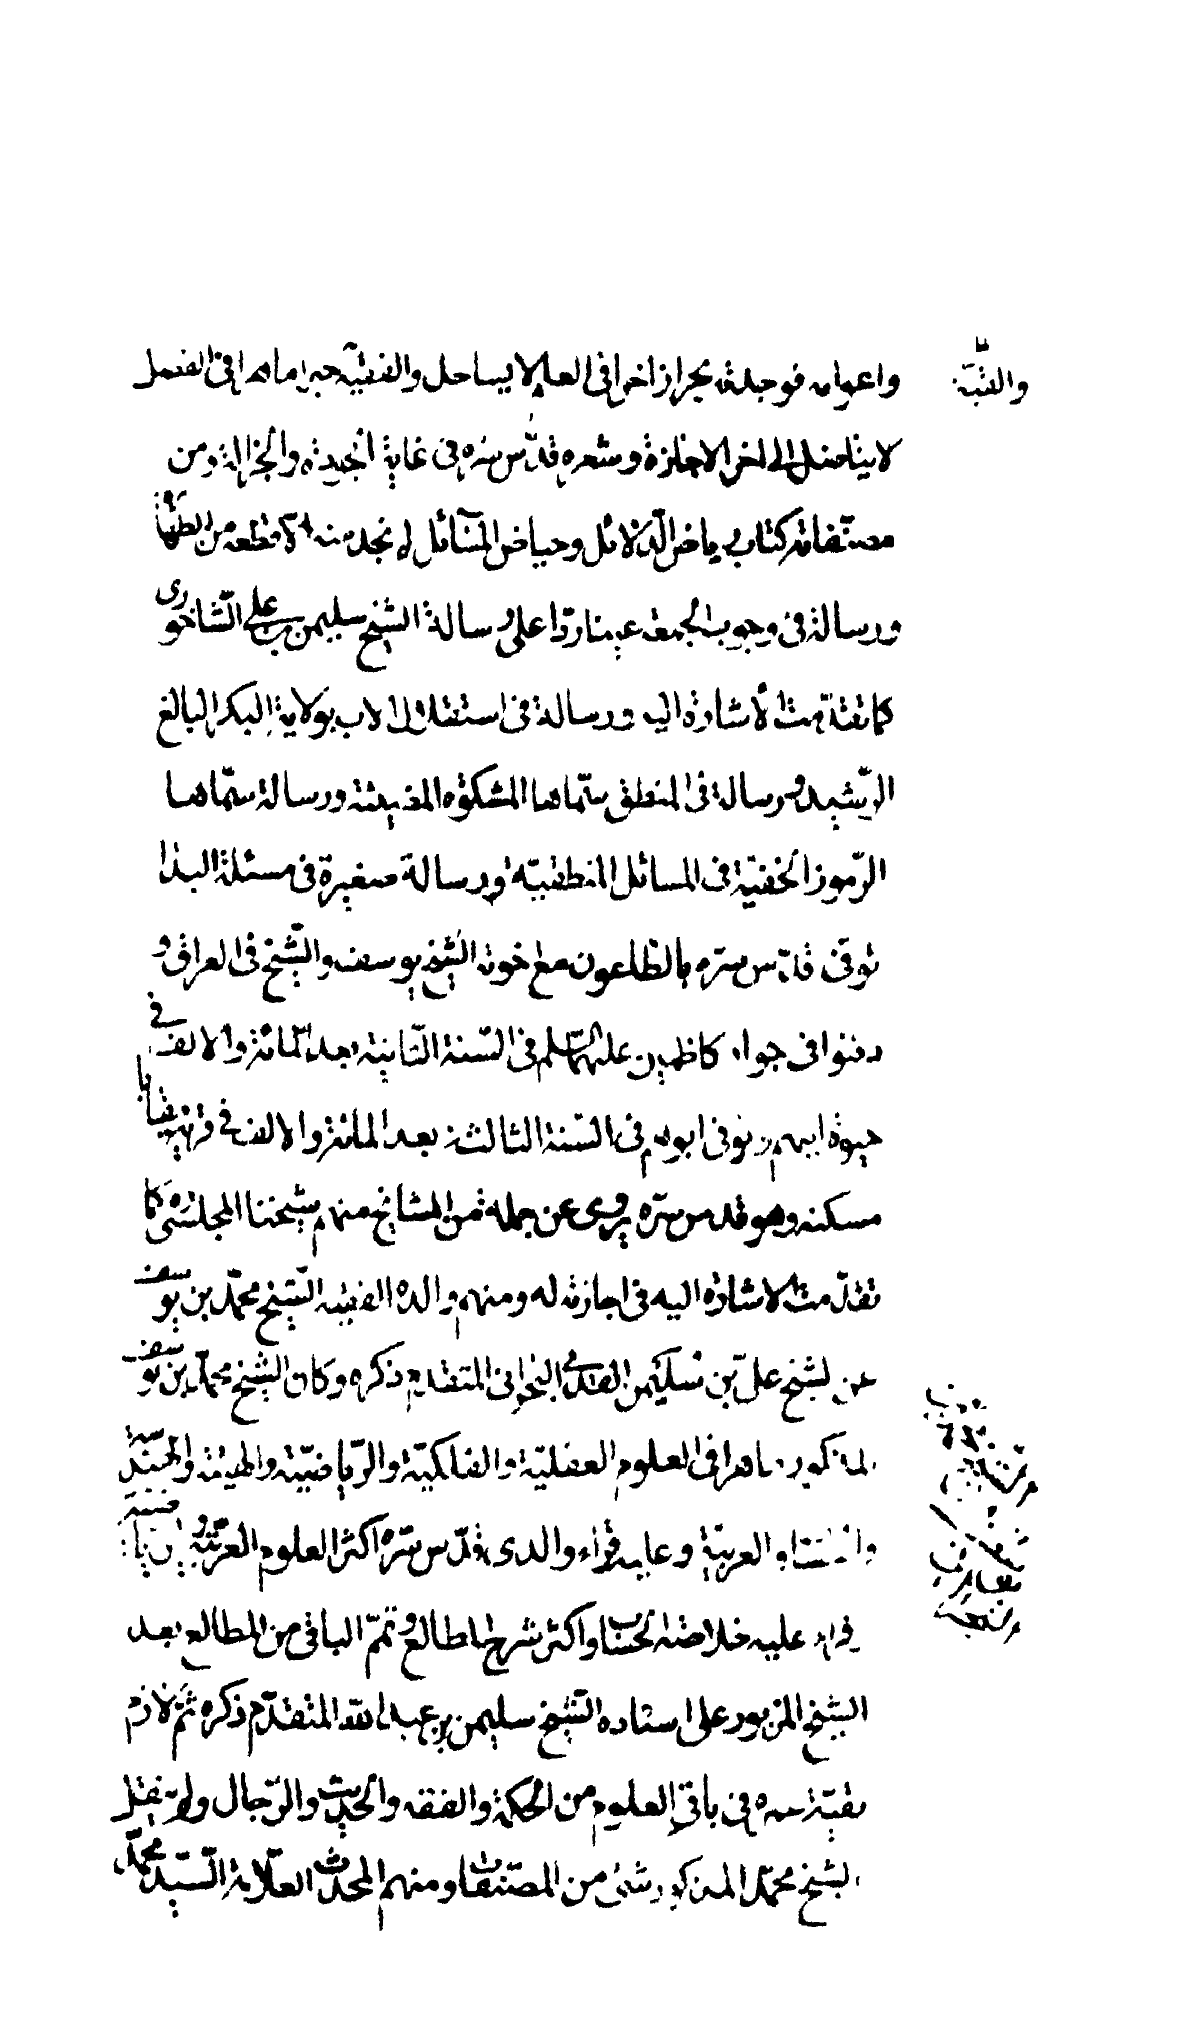 واعوام فوجدته بحرا زاخرا في العلم لا يساحل والفيته حبرا ماهرا في الفضل
والفيته
لا يناضل الى اخر الاجازة وشعره قدس سره في غاية الجودة والجزالة ومن
مصنفاته كتاب رياض الدلائل وحياض المسائل لم نجد منه الا قطعة من الطهارة
ورسالة في وجوب الجمعة عينا ردا على رسالة الشيخ سليمن بن علي الشاخوري
كما تقدمت الاشارة اليه ورسالة في استقلال الاب بولاية البكر البالغ
الرشيد ورسالة في المنطق سماها المشكوة المضيئة ورسالة سماها
الرموز الخفية في المسائل المنطقية ورسالة صغيرة في مسئلة البدا
توفي قدس سره بالطاعون مع اخوته الشيخ يوسف والشيخ في العراق و
دفنوا في جوار كاظمين عليهما السلم في السنة الثانية بعد المائة والالف في
حيوة ابيهم وتوفى ابوهم في السنة الثالثة بعد المائة والالف في قرية مقابا
مسكنه وهو قدس سره يروي عن جملة من المشايخ منهم شيخنا المجلسي ره كما
تقدمت الاشارة اليه في اجازته له ومنهم والده الفقيه الشيخ محمد بن يوسف
عن الشيخ علي بن سليمن القدمي البحراني المتقدم ذكره وكان الشيخ محمد بن يوسف
المذكور ماهرا في العلوم العقلية والفلكية والرياضية والهيئة والهندسة
والحساب والعربية وعليه قراء والدي قدس سره اكثر العلوم العربية والرياضية
قراء عليه خلاصة الحساب واكثر شرح المطالع وتمم الباقي من المطالع بعد
الشيخ المزبور على استاده الشيخ سليمن بن عبد الله المتقدم ذكره ثم لازم
بقية عمره في باقي العلوم من الحكمة والفقه والحديث والرجال ولم ينقل
الشيخ محمد المذكور شئ من المصنفات ومنهم المحدث العلامة السيد محمد